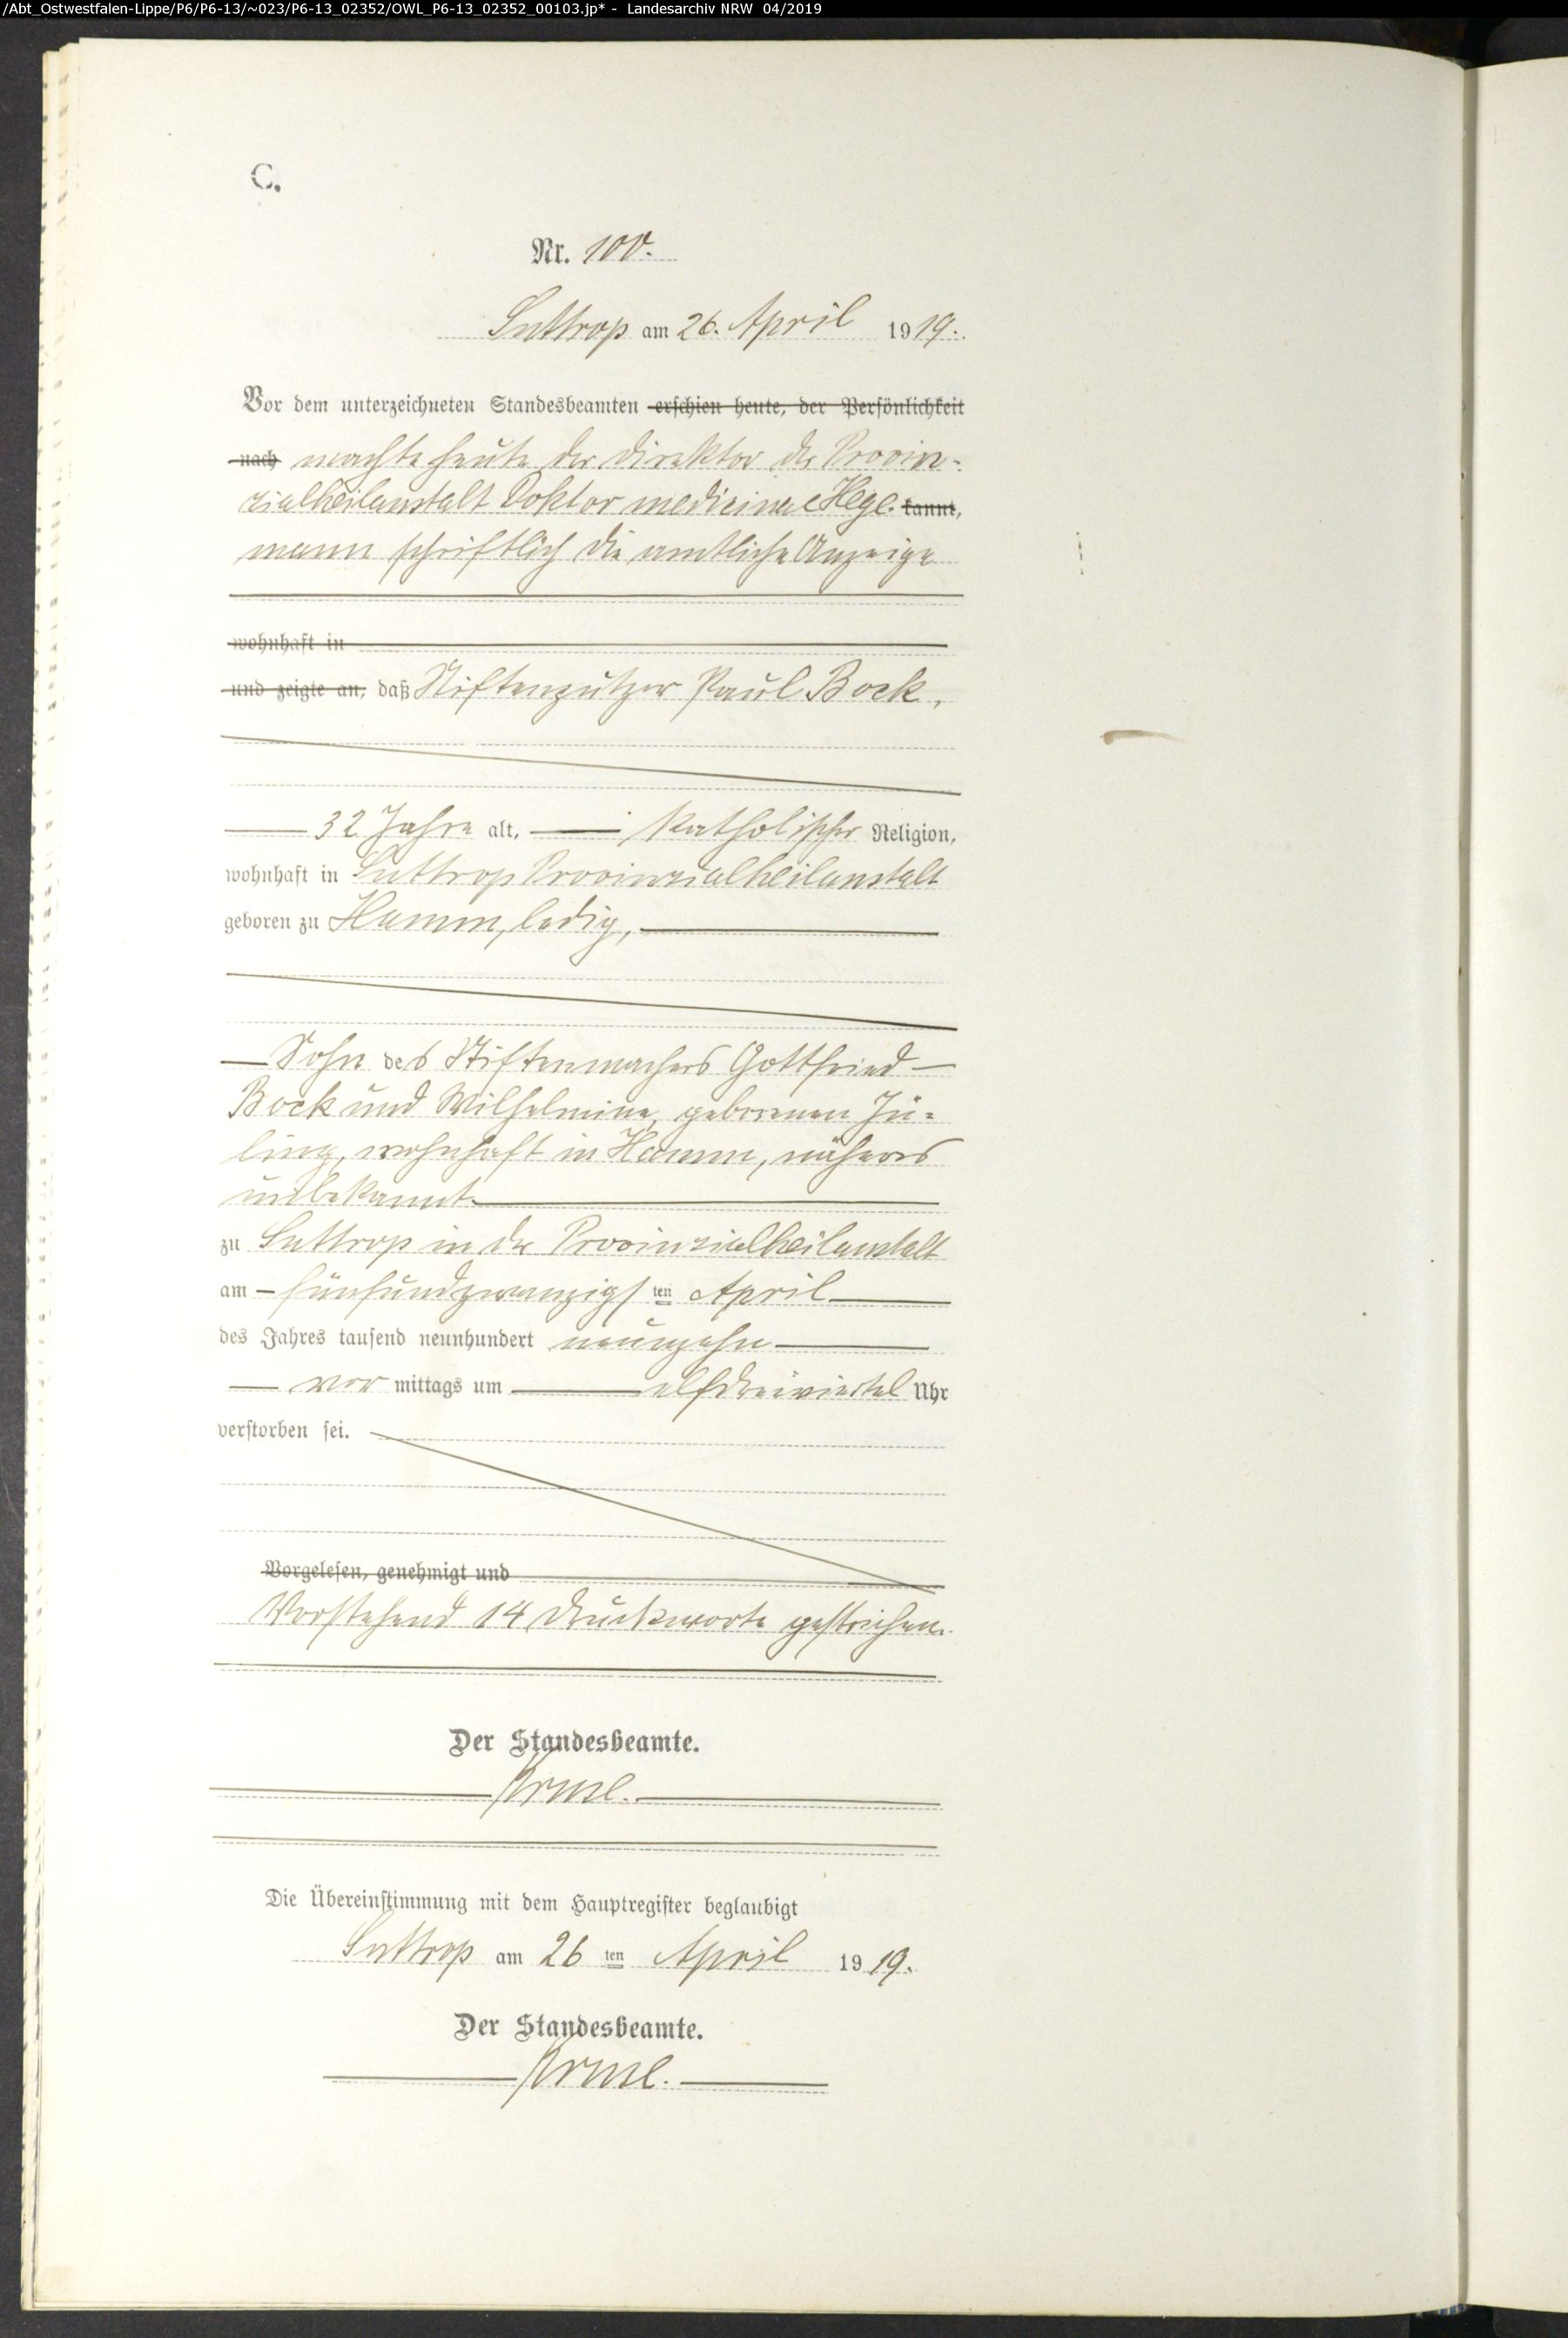 /Abt_Ostwestfalen-Lippe/P6/P6-13/~023/P6-13_02352/OWL_P6-13_02352_00103.jp* - Landesarchiv NRW 04/2019
C.
Nr. 100.
Suttrop am 26. April 1919.
Vor dem unterzeichneten Standesbeamten erschien heute, der Persönlichkeit
nach machte heute der Direktor der Provin-
zialheilanstalt Doktor medicinae Hege- kannt,
mann schriftlich die amtliche Anzeige
wohnhaft in
und zeigte an, daß Stiftenputzer Paul Bock,
32 Jahre alt, katholischer Religion,
wohnhaft in Suttrop Provinzialheilanstalt
geboren zu Hamm, ledig,
Sohn des Stiftenmachers Gottfried
Bock und Wilhelmine, geborenen Jü-
ling, wohnhaft in Hamm, näheres
unbekannt
zu Suttrop in der Provinzialheilanstalt
am fünfundzwanzigsten April
des Jahres tausend neunhundert neunzehn
vor mittags um elfdreiviertel Uhr
verstorben sei.
Vorgelesen, genehmigt und
Vorstehend 14 Druckworte gestrichen.
Der Standesbeamte.
Die Übereinstimmung mit dem Hauptregister beglaubigt
Suttrop am 26 ten April 1919.
Der Standesbeamte.